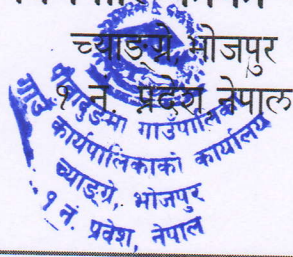 च्याङग्रे, भोजपुर
१ नं. प्रदेश, नेपाल
गाउँपालिका
गाउँ कार्यपालिकाको कार्यालय
च्याङ्ग्रे भोजपुर
१ नं. प्रदेश, नेपाल